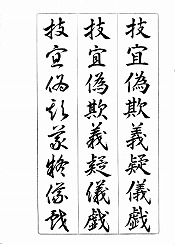 技宜偽欺義疑儀戯
技宜偽欺義疑儀戯
技宜偽欺義疑儀戯